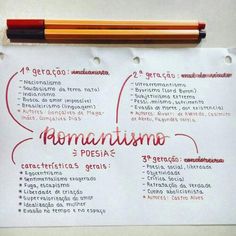 1ª geração: indianista
• Nacionalismo
• Saudosismo da terra natal
• Indianismo
• Busca do amor impossível
• Brasileirismo (linguagem)
• Autores: Gonçalves de Maga-
lhães, Gonçalves Dias
2ª geração:
• Ultrarromantismo
• Byronismo (Lord Byron)
• Subjetivismo extremo
• Pessimismo, sofrimento
• Evasão da morte
• Autores: Álvares de Azevedo, Casimiro
de Abreu, Fagundes Varela
Romantismo
POESIA
características gerais:
* Egocentrismo
* Sentimentalismo exagerado
* Fuga, escapismo
* Liberdade de criação
* Supervalorização do amor
* Idealização da mulher
* Evasão no tempo e no espaço
3ª geração: condoreira
• Poesia social, liberdade
• Objetividade
• Crítica Social
• Retratação da verdade
• Cunho abolicionista
• Autores: Castro Alves